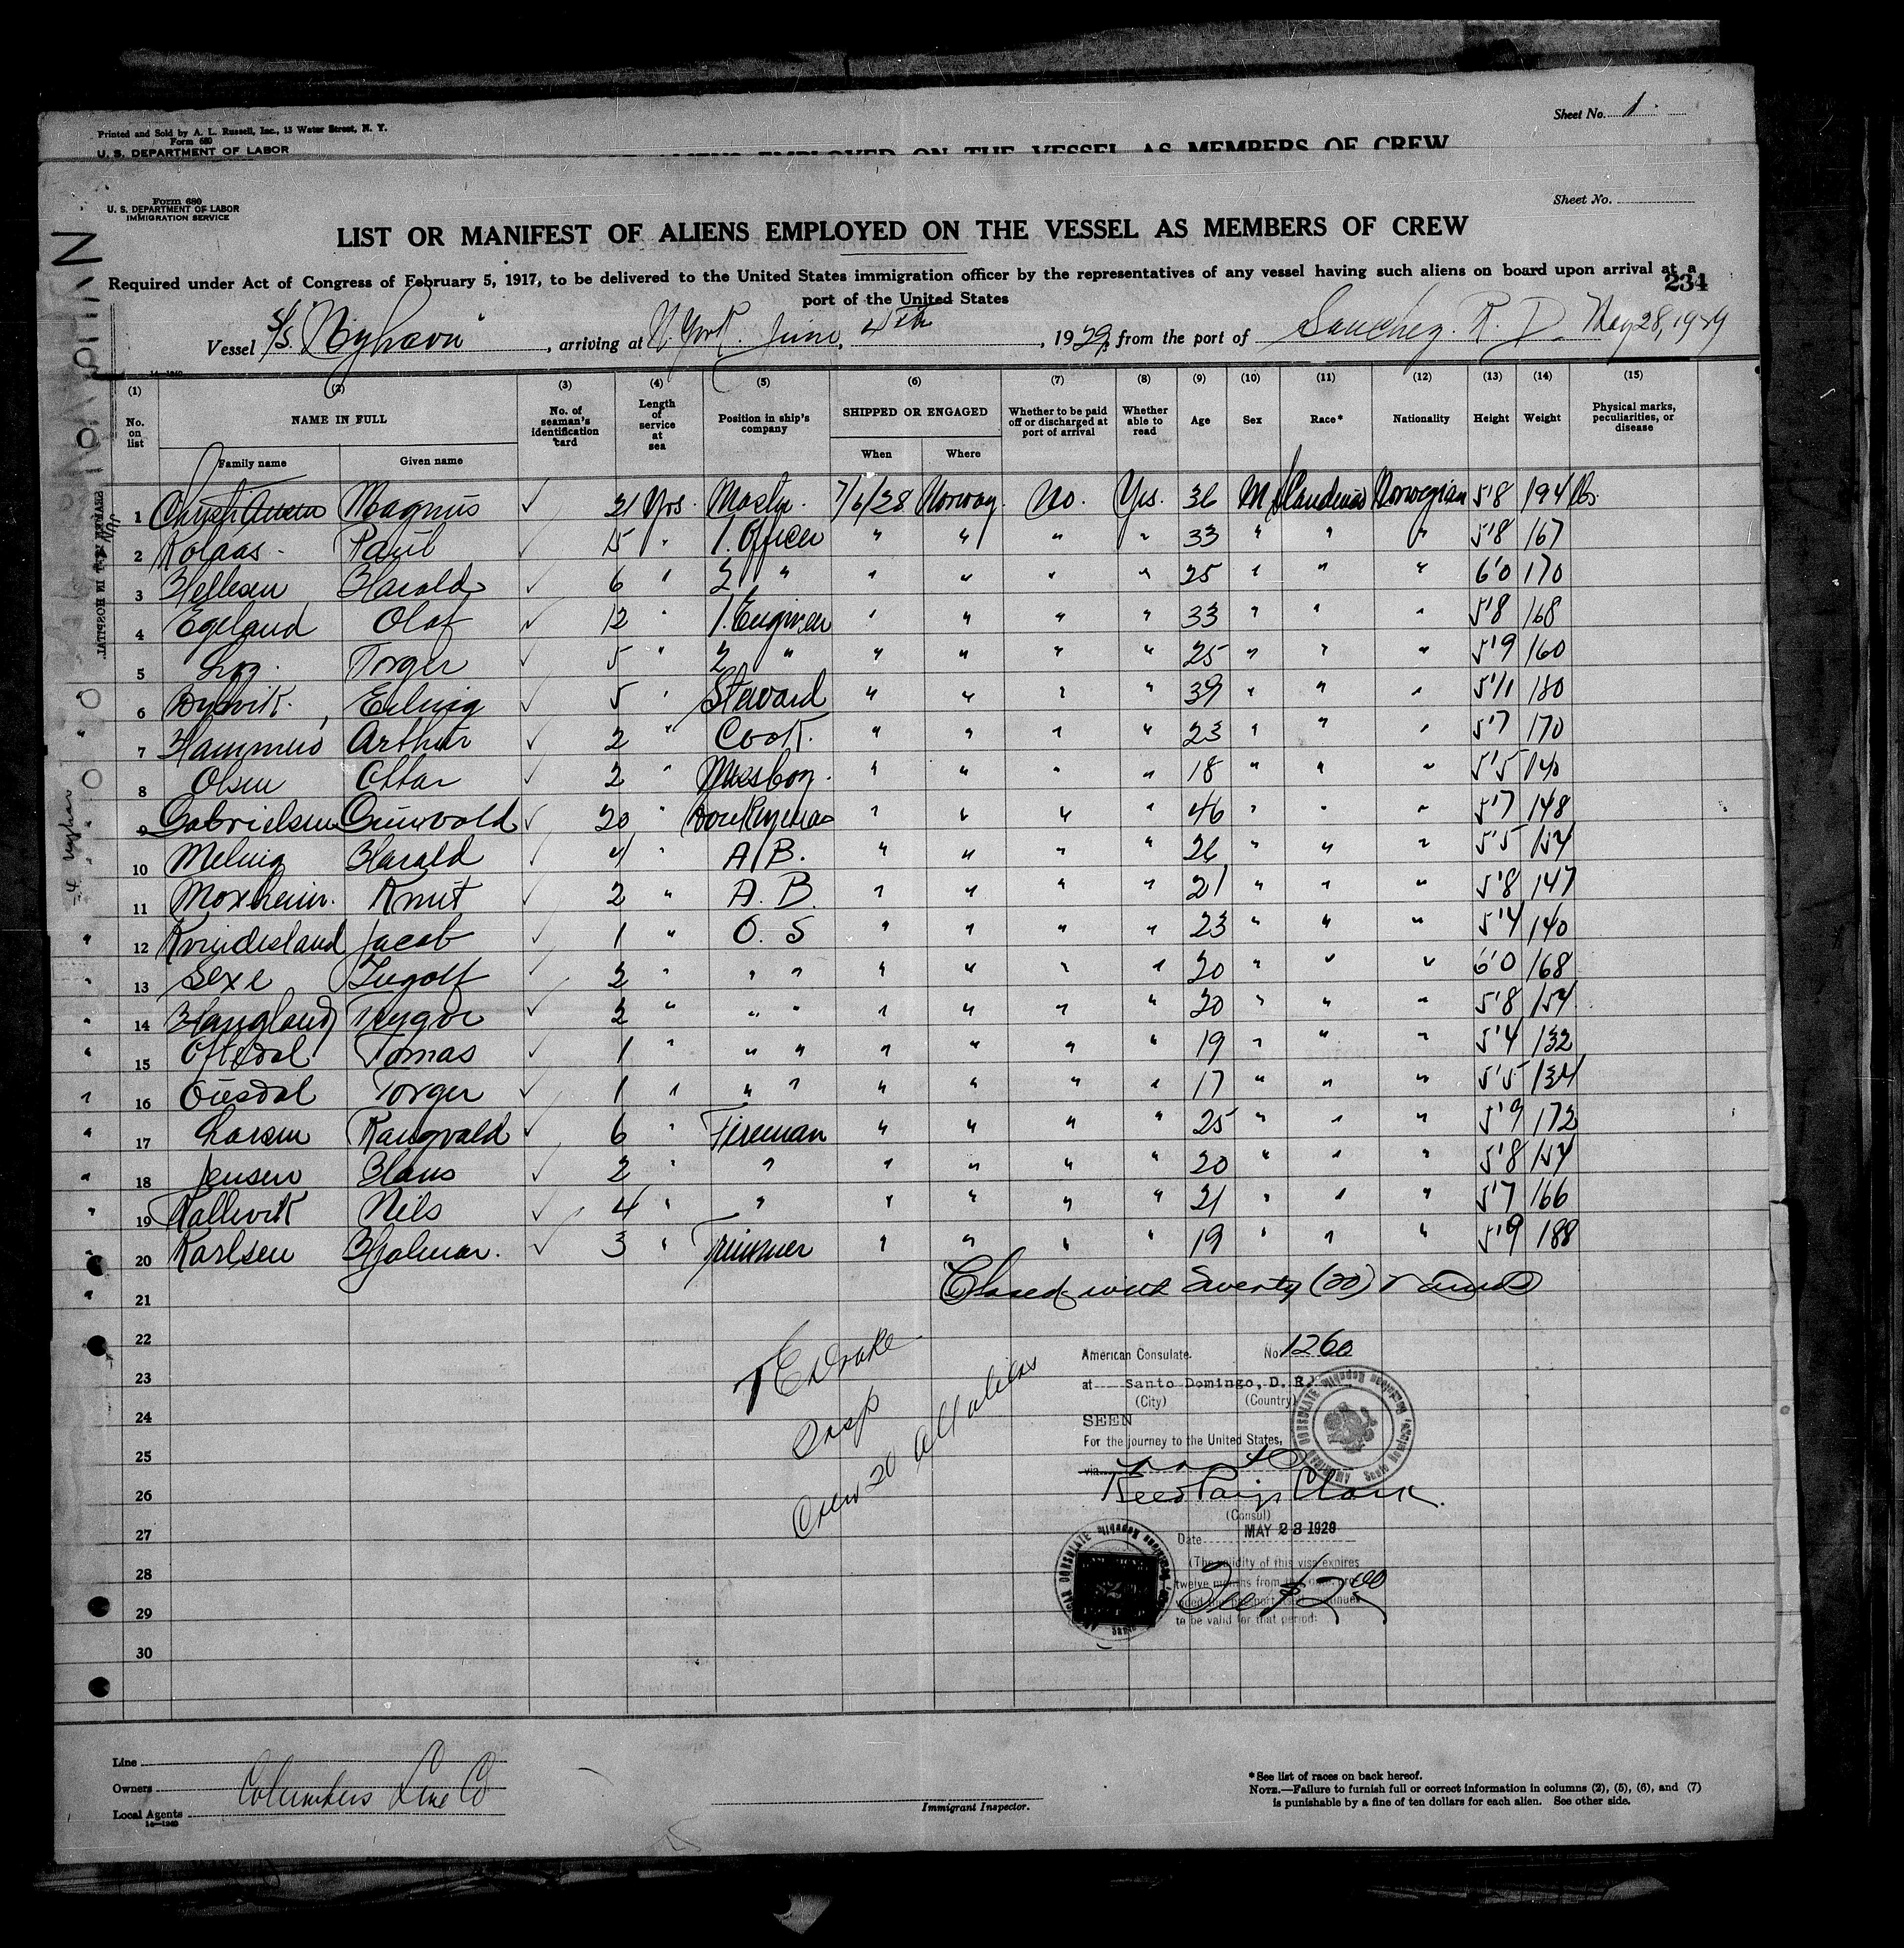 Sheet No. 1
Printed and Sold by A. L. Russell, Inc., 13 Water Street, N. Y.
Form 680
U. S. DEPARTMENT OF LABOR
ALIENS EMPLOYED ON THE VESSEL AS MEMBERS OF CREW
Form 680
U. S. DEPARTMENT OF LABOR
IMMIGRATION SERVICE
Sheet No.
LIST OR MANIFEST OF ALIENS EMPLOYED ON THE VESSEL AS MEMBERS OF CREW
Required under Act of Congress of February 5, 1917, to be delivered to the United States immigration officer by the representatives of any vessel having such aliens on board upon arrival at a
port of the United States
234
Vessel S/S. "Nyhavn", arriving at N. York. June, 4th, 1929, from the port of Sanchez. R. D. May 28, 1929
14-1240
(1) (2) (3) (4) (5) (6) (7) (8) (9) (10) (11) (12) (13) (14) (15)
No. on list
NAME IN FULL
Family name
Given name
No. of seaman's identification card
Length of service at sea
Position in ship's company
SHIPPED OR ENGAGED
When
Where
Whether to be paid off or discharged at port of arrival
Whether able to read
Age
Sex
Race*
Nationality
Height
Weight
Physical marks, peculiarities, or disease
1 Magnus ✓ 21 Yrs. Master. 7/6/28 Norway. No. Yes. 36 M Norwegian 5'8 194 lbs.
2 Kolaas. Paul ✓ 15 " 1. Officer " " " " 33 " " " 5'8 167
3 Hellesen Harald ✓ 6 " 2 " " " " " 25 " " " 6'0 170
4 Egeland Olaf ✓ 12 " 1. Engineer " " " " 33 " " " 5'8 168
5 Torger ✓ 5 " 2 " " " " " 25 " " " 5'9 160
6 Erling ✓ 5 " Stevard " " " " 39 " " " 5'11 180
7 Arthur ✓ 2 " Cook. " " " " 23 " " " 5'7 170
8 Olsen Ottar ✓ 2 " Messboy. " " " " 18 " " " 5'5 140
9 Gabrielsen Gunvald ✓ 20 " Donkeyman " " " " 46 " " " 5'7 148
10 Meling Harald ✓ 4 " A. B. " " " " 26 " " " 5'5 154
11 Moxheim. Knut ✓ 2 " A. B. " " " " 21 " " " 5'8 147
12 Kvindesland Jacob ✓ 1 " O. S " " " " 23 " " " 5'4 140
13 Sexe Ingolf ✓ 2 " " " " " " " 20 " " " 6'0 168
14 Haugland Trygve ✓ 2 " " " " " " " 20 " " " 5'8 154
15 Oftedal Tomas ✓ 1 " " " " " " 19 " " " 5'4 132
16 Ousdal Torger ✓ 1 " " " " " " " 17 " " " 5'5 134
17 Larsen Rangvald ✓ 6 " Fireman " " " " 25 " " " 5'9 172
18 Jensen Hans ✓ 2 " " " " " " 20 " " " 5'8 154
19 Kallevik Nils ✓ 4 " " " " " " 21 " " " 5'7 166
20 Karlsen Hjalmar. ✓ 3 " Trimmer " " " " 19 " " " 5'9 188
21 Closed with Twenty (20) names
22
23
24
25
26
27
28
29
30
T E Drake
Insp
Crew 20 all aliens
American Consulate. No. 1260
at Santo Domingo, D. R.
(City) (Country)
SEEN
For the journey to the United States,
via
Reed Paige Clark.
(Consul)
Date MAY 23 1929
(The validity of this visa expires
twelve months from
to be valid for that period:
Fee $2.00
AMERICAN CONSULATE Santo Domingo, Dominican Republic
Line
Owners
Local Agents
Columbus Line Co
14-1240
Immigrant Inspector.
*See list of races on back hereof.
NOTE.—Failure to furnish full or correct information in columns (2), (5), (6), and (7)
is punishable by a fine of ten dollars for each alien. See other side.